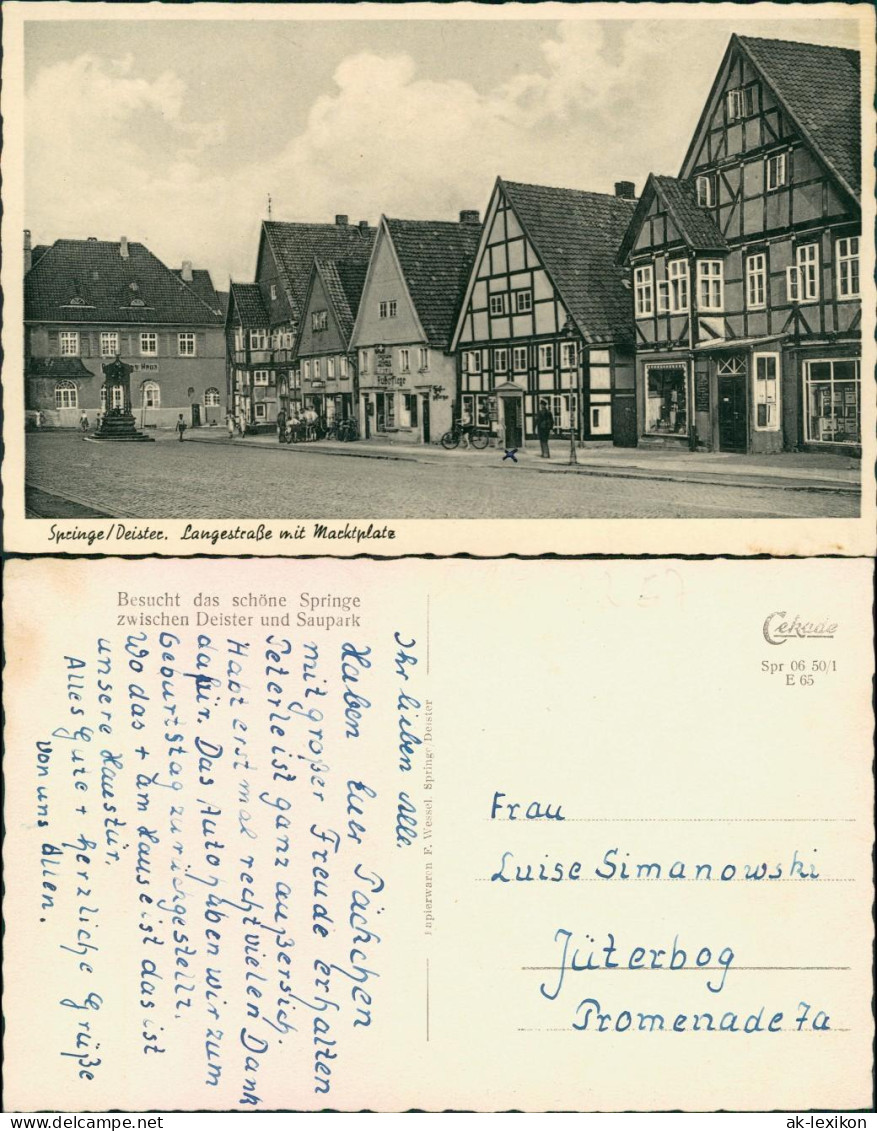 Springe/Deister. Langestraße mit Marktplatz
Besucht das schöne Springe
zwischen Deister und Saupark
Ihr lieben Alle
Haben Euer Päckchen
mit großer Freude erhalten
Peterle ist ganz außer sich.
Habt erst mal recht vielen Dank
dafür. Das Auto haben wir zum
Geburtstag zurückgestellt.
Wo das + am Hause ist das ist
unsere Haustür.
Alles Gute + herzliche Grüße
von uns Allen.
Papierwaren F. Wessel. Springe Deister
Cekade
Spr 06 50/1
E 65
Frau
Luise Simanowski
Jüterbog
Promenade 7a
delcampe.net
ak-lexikon